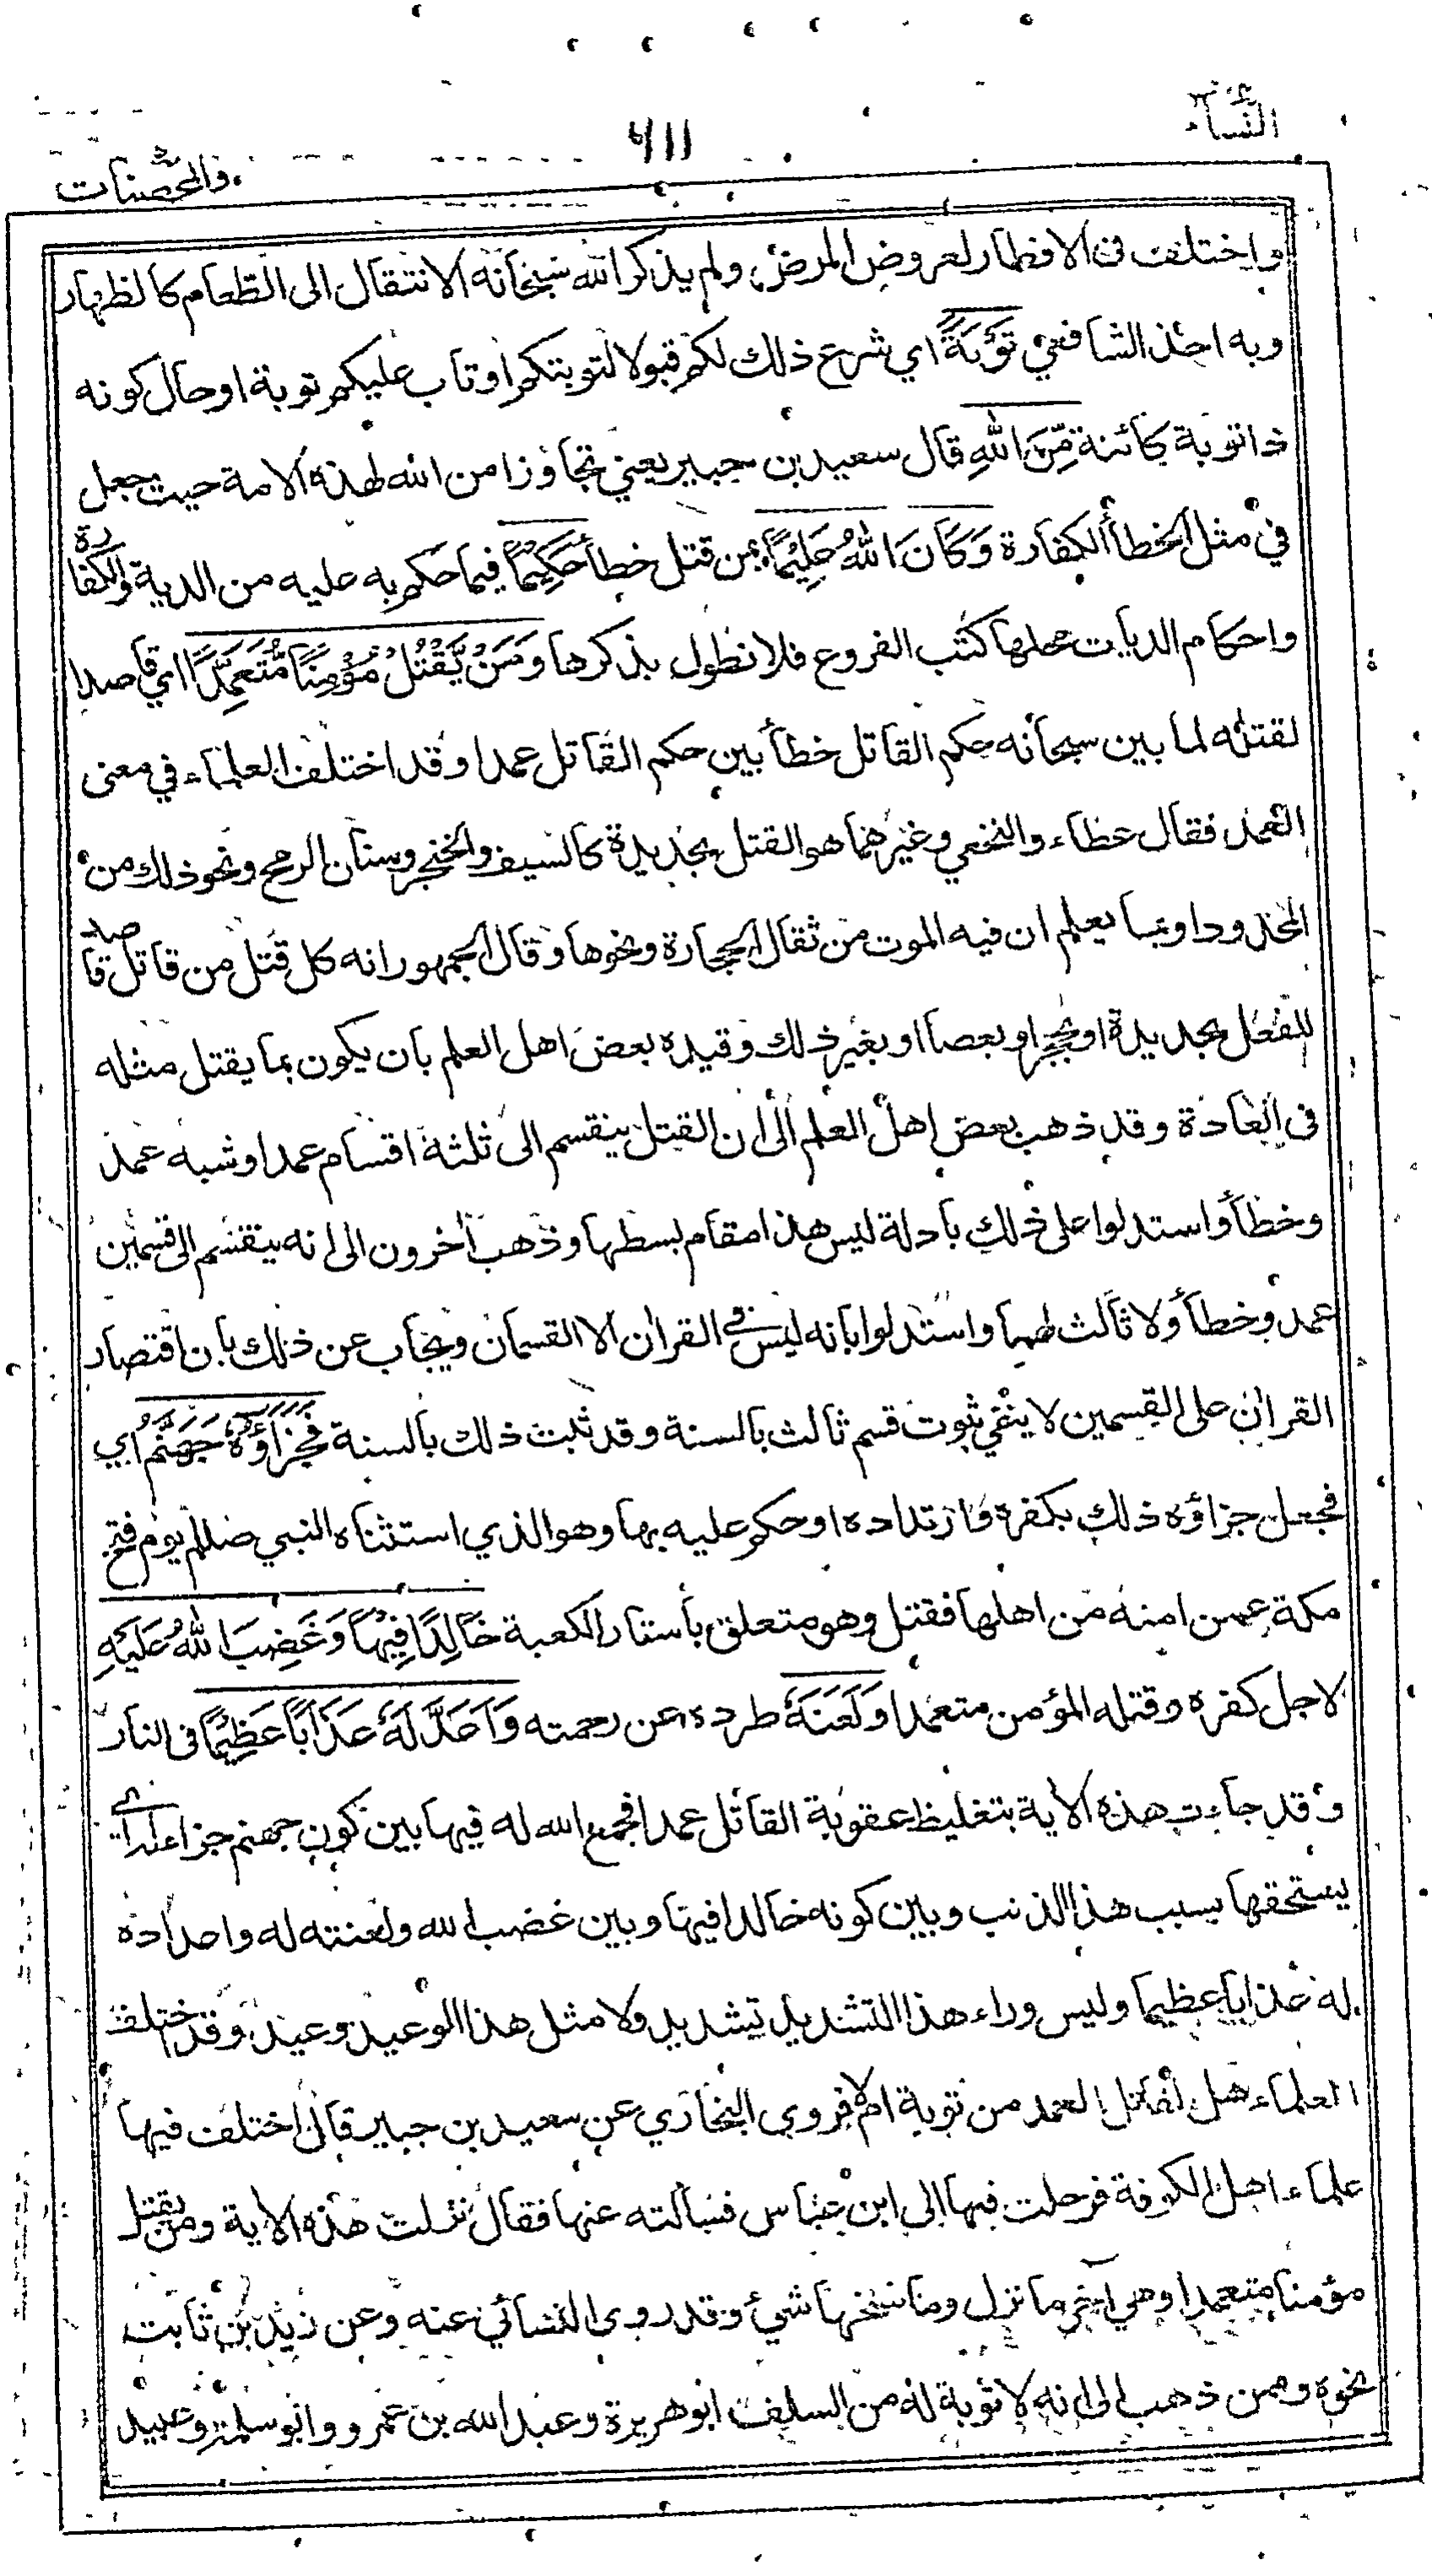 النساء
٦١١
والمحصنات
واختلف فى الافطار لعروض المرض ولم يذكر الله سبحانه الانتقال الى الطعام كالظهار
وبه اخذ الشافعي تَوْبَةً اي شرع ذلك لكم قبولا لتوبتكم او تاب عليكم توبة او حال كونه
ذا توبة كائنة مِّنَ اللهِ قال سعيد بن جبير يعني تجاوزا من الله لهذه الامة حيث جعل
في مثل الخطأ الكفارة وَكَانَ اللهُ عَلِيْمًا بمن قتل خطأ حَكِيْمًا فيما حكم به عليه من الدية والكفارة
واحكام الديات محلها كتب الفروع فلا نطول بذكرها وَمَنْ يَّقْتُلْ مُؤْمِنًا مُّتَعَمِّدًا اي قاصدا
لقتله لما بين سبحانه حكم القاتل خطأ بين حكم القاتل عمدا وقد اختلف العلماء في معنى
العمد فقال عطاء والنخعي وغيرهما هو القتل بحديدة كالسيف والخنجر وسنان الرمح ونحو ذلك من
المحدود او بما يعلم ان فيه الموت من ثقال الحجارة ونحوها وقال الجمهور انه كل قتل من قاتل قاصد
للفعل بحديدة او بحجر او بعصا او بغير ذلك وقيده بعض اهل العلم بان يكون بما يقتل مثله
فى العادة وقد ذهب بعض اهل العلم الى ان القتل ينقسم الى ثلثة اقسام عمد او شبه عمد
وخطأ واستدلوا على ذلك بادلة ليس هذا مقام بسطها وذهب اخرون الى انه ينقسم الى قسمين
عمد وخطأ ولا ثالث لهما واستدلوا بانه ليس في القران الا القسمان ويجاب عن ذلك بان اقتصار
القران على القسمين لا ينفي ثبوت قسم ثالث بالسنة وقد ثبت ذلك بالسنة فَجَزَاؤُهٗ جَهَنَّمُ اي
فجعل جزاؤه ذلك بكفره وارتداده او حكم عليه بها وهو الذي استثناه النبي صللم يوم فتح
مكة عمن امنه من اهلها فقتل وهو متعلق بأستار الكعبة خَالِدًا فِيْهَا وَغَضِبَ اللهُ عَلَيْهِ
لاجل كفره وقتله المؤمن متعمدا وَلَعَنَهٗ طرده عن رحمته وَاَعَدَّ لَهٗ عَذَابًا عَظِيْمًا فى النار
وقد جاءت هذه الاية بتغليظ عقوبة القاتل عمدا فجمع الله له فيها بين كون جهنم جزاء له اي
يستحقها بسبب هذا الذنب وبين كونه خالدا فيها وبين غضب الله ولعنته له واعداده
له عذابا عظيما وليس وراء هذا التشديد تشديد ولا مثل هذا الوعيد وعيد وقد اختلف
العلماء هل لقاتل العمد من توبة ام لا فروى البخاري عن سعيد بن جبير قال اختلف فيها
علماء اهل الكوفة فرحلت فيها الى ابن عباس فسألته عنها فقال نزلت هذه الاية ومن يقتل
مؤمنا متعمدا وهي آخر ما نزل وما نسخها شئ وقد روى النسائي عنه وعن زيد بن ثابت
نحوه وممن ذهب الى انه لا توبة له من السلف ابو هريرة وعبد الله بن عمرو وابو سلمة وعبيد